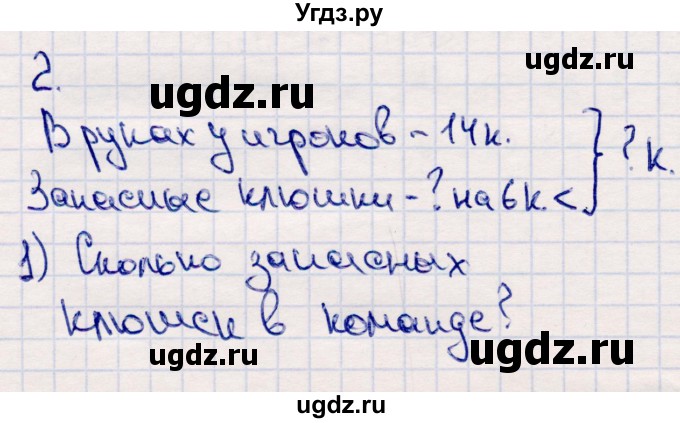 Угдз.ру
2.
ugdz.ru
ugdz.ru
В руках у игроков - 14 к.
} ? к.
Запасные клюшки - ? на 6 к. <
1) Сколько запасных
клюшек в команде?
ugdz.ru
ugdz.ru
ugdz.ru